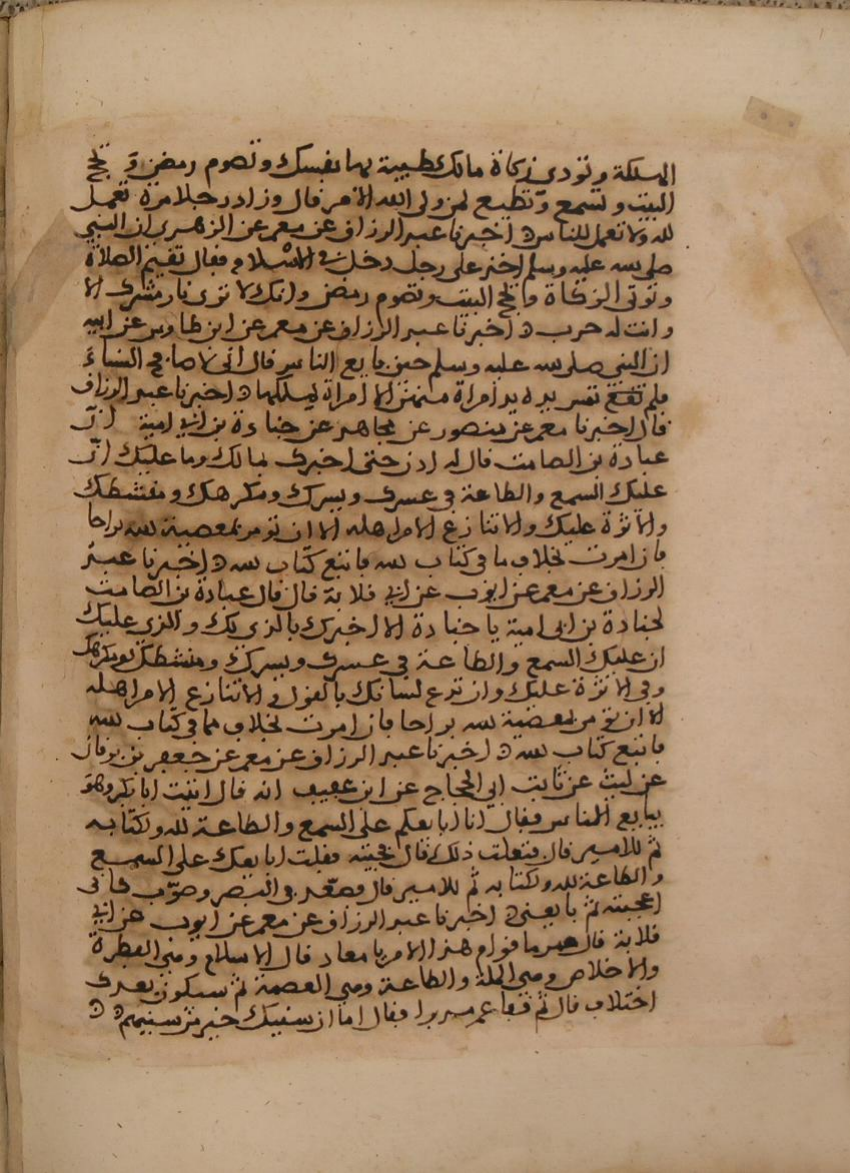 المسلة وتودي زكاة مالك طيبة بها نفسك وتصوم رمضن وتحج
البيت وتسمع وتطيع لمن ولى الله الامر قال وزاد رجلا مرة تعمل
لله ولا تعمل للناس اخبرنا عبد الرزاق عن معمر عن الزهري ان النبي
صلى الله عليه وسلم اخذ على رجل دخل في الاسلام فقال تقيم الصلاة
وتوتي الزكاة وتحج البيت وتصوم رمضن وانك لا ترى نار مشرك الا
وانت له حرب اخبرنا عبد الرزاق عن معمر عن ابن طاوس عن ابيه
ان النبي صلى الله عليه وسلم حين بايع الناس قال اني لا اصافح النساء
فلم تقع تمس يده يد امراة منهن الا امراة يملكها اخبرنا عبد الرزاق
قال اخبرنا معمر عن منصور عن مجاهد عن جنادة بن ابي امية ان
عبادة بن الصامت قال له ادن حتى اخبرك بمالك وما عليك ان
عليك السمع والطاعة في عسرك ويسرك ومكرهك ومنشطك
والاثرة عليك ولا تنازع الامر اهله الا ان تومر بمعصية لله براحا
فان امرت بخلاف ما في كتاب الله فاتبع كتاب الله اخبرنا عبد
الرزاق عن معمر عن ايوب عن ابي قلابة قال قال عبادة بن الصامت
لجنادة بن ابي امية يا جنادة الا اخبرك بالذي لك والذي عليك
ان عليك السمع والطاعة في عسرك ويسرك ومنشطك ومكرهك
وفي الاثرة عليك وان تدع لسانك بالقول ولا تنازع الامر اهله
الا ان تومر بمعصية لله براحا فان امرت بخلاف ما في كتاب الله
فاتبع كتاب الله اخبرنا عبد الرزاق عن معمر عن جعفر بن برقان
عن ليث عن ثابت ابي الحجاج عن ابن عفيف انه قال اتيت ابا بكر وهو
يبايع الناس فقال انا ابايعكم على السمع والطاعة لله ولكتابه
ثم للامير قال فتعلمت ذلك قال فجيته فقلت ابايعك على السمع
والطاعة لله ولكتابه ثم للامير قال فصعد في البصر وصوب كاني
اعجبته ثم بايعني اخبرنا عبد الرزاق عن معمر عن ايوب عن ابي
قلابة قال عمر ما قوام هذا الامر يا معاذ قال الاسلام وهي الفطرة
والاخلاص وهي الملة والطاعة وهي العصمة ثم سيكون بعدك
اختلاف قال ثم قفا عمر مدبرا فقال اما ان سنيك خير من سنيهم